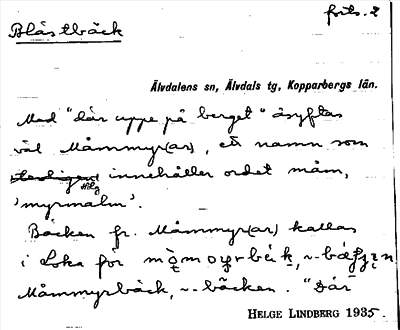 forts. 2
Blästbäck
Älvdalens sn, Älvdals tg, Kopparbergs län.
Med "där uppe på berget" åsyftas
väl Måmmyr(ar), ett namn som
innehåller ordet måm,
'myrmalm'.
Bäcken fr. Måmmyr(ar) kallas
i Loka för
Måmmyrbäck, ~ bäcken. "Där
HELGE LINDBERG 1935.